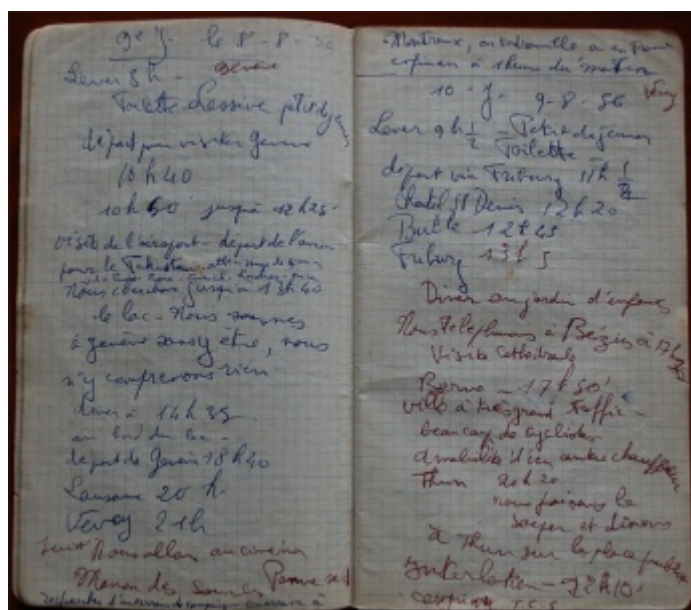 9e J. le 8-8-56
Genève
Lever 8h -
Toilette Lessive ptit dej
départ pour visiter Genève
10h40
10h50 jusqu'à 12h25
visite de l'aéroport - départ de l'avion
pour le Pakistan
Nous cherchons jusqu'à 13h40
le lac - Nous sommes
à genève sans y être, nous
n'y comprenons rien
diner à 14h35
au bord du lac -
départ de Genève 18h40
Lausanne 20 h.
Vevey 21h
Nous allons au cinéma
Manon des Sources
Montreux, on
à 1 heure du matin
10 - J. 9-8-56
Lever 9h 1/2 - Petit dejeuner
Toilette
départ via Friburg 11h 1/2
Chatel St Denis 12h20
Bulle 12h45
Friburg 13h 5
Diner au jardin d'enfants
Nous telephonons à Béziers à 17h
Visite Cathédrale
Berne - 17h50'
ville à très grand traffic -
beaucoup de cyclistes
Thun 20h20
nous faisons le
souper et dinons
à Thun sur la place publique
Interlaken - 22h10'
camping T.C.S